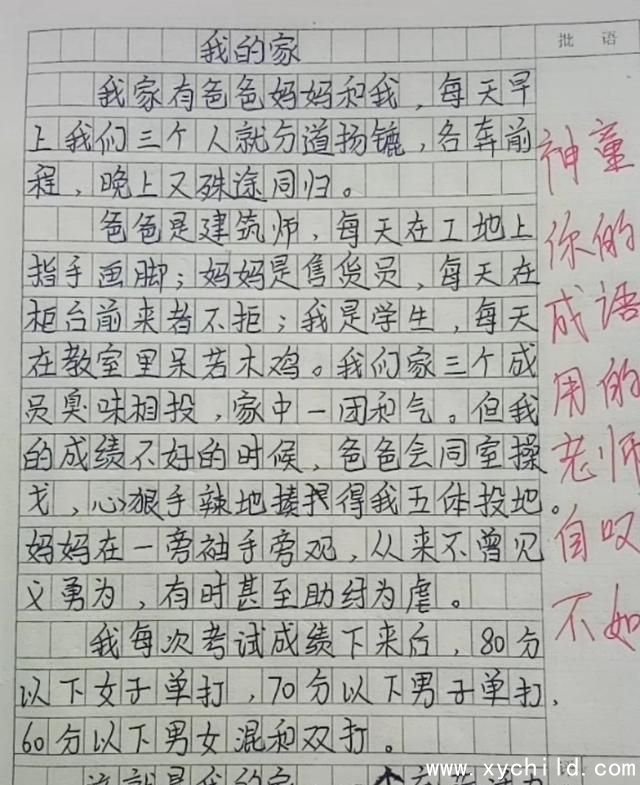 我的家
我家有爸爸妈妈和我，每天早
上我们三个人就分道扬镳，各奔前
程，晚上又殊途同归。
爸爸是建筑师，每天在工地上
指手画脚；妈妈是售货员，每天在
柜台前来者不拒；我是学生，每天
在教室里呆若木鸡。我们家三个成
员臭味相投，家中一团和气。但我
的成绩不好的时候，爸爸会同室操
戈，心狠手辣地揍得我五体投地。
妈妈在一旁袖手旁观，从来不曾见
义勇为，有时甚至助纣为虐。
我每次考试成绩下来后，80分
以下女子单打，70分以下男子单打，
60分以下男女混和双打。
这就是我的家
批语
神童
你的
成语
用的
老师
自叹
不如
www.xychild.com